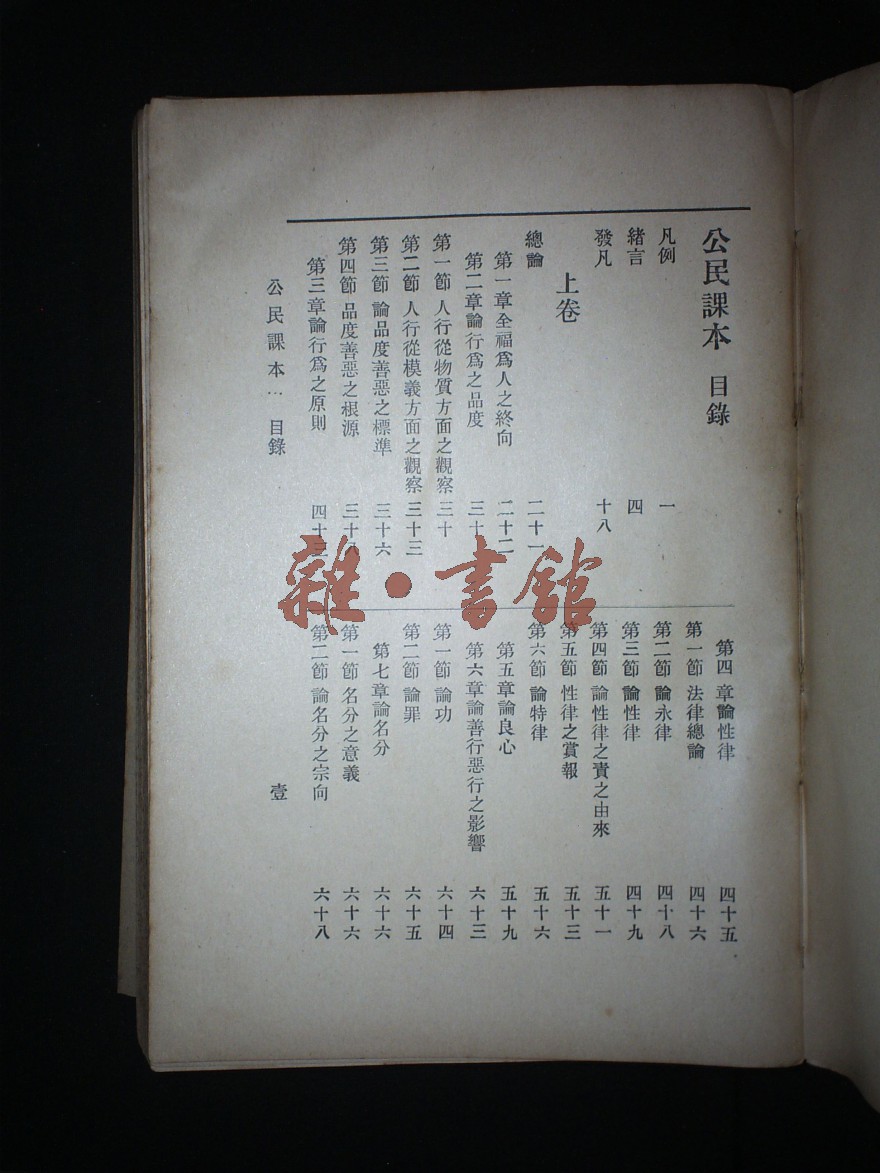 公民課本 目錄
凡例 一
緒言 四
發凡 十八
上卷
總論 二十一
第一章全福爲人之終向 二十二
第二章論行爲之品度 三十
第一節 人行從物質方面之觀察 三十
第二節 人行從模義方面之觀察 三十三
第三節 論品度善惡之標準 三十六
第四節 品度善惡之根源 三十八
第三章論行爲之原則 四十
第四章論性律 四十五
第一節 法律總論 四十六
第二節 論永律 四十八
第三節 論性律 四十九
第四節 論性律之責之由來 五十一
第五節 性律之賞報 五十三
第六節 論特律 五十六
第五章論良心 五十九
第六章論善行惡行之影響 六十三
第一節 論功 六十四
第二節 論罪 六十五
第七章論名分 六十六
第一節 名分之意義 六十六
第二節 論名分之宗向 六十八
公民課本… 目錄 壹
雜·書館